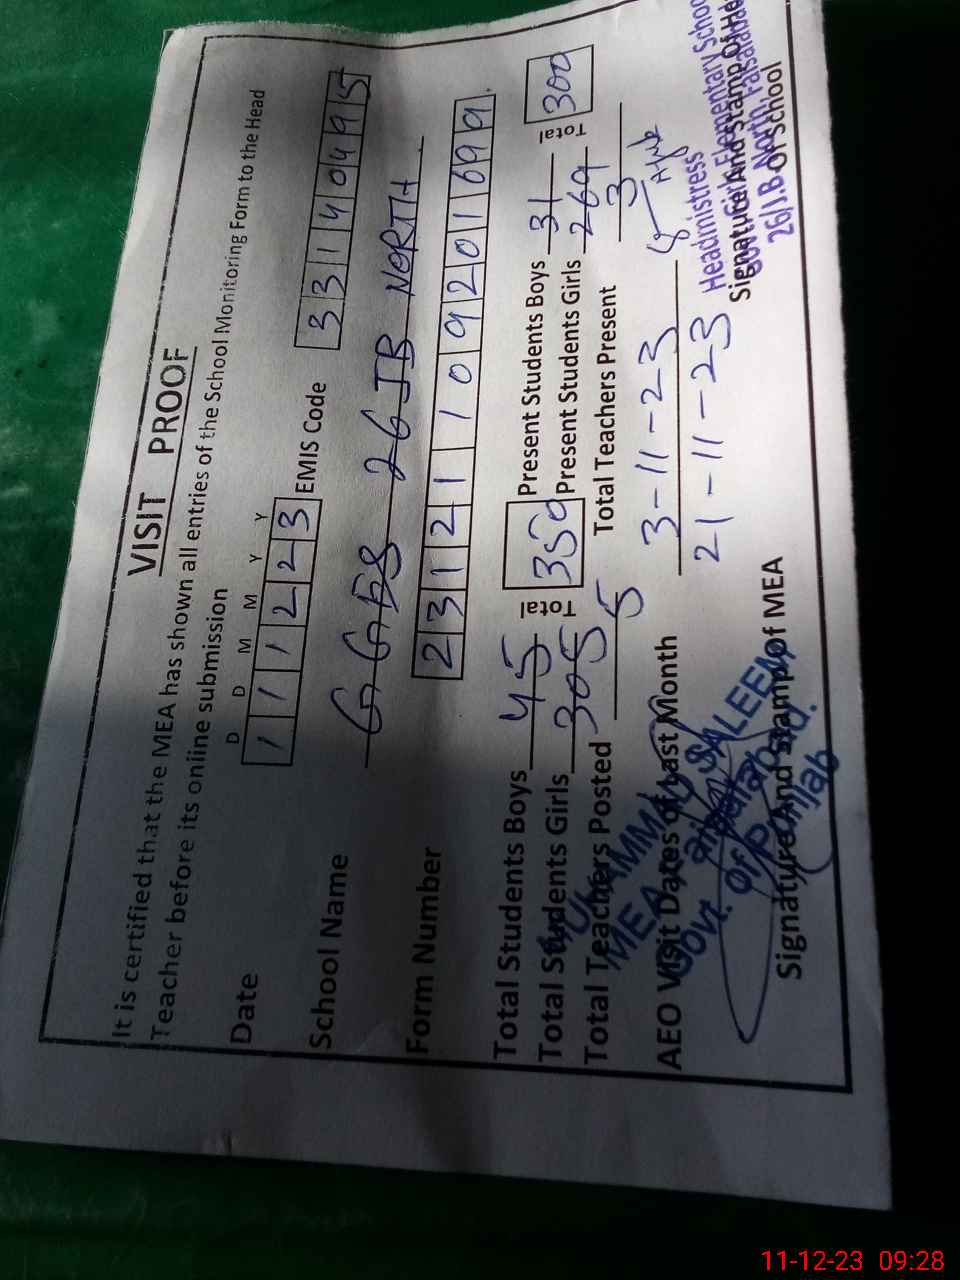 VISIT PROOF
It is certified that the MEA has shown all entries of the School Monitoring Form to the Head
Teacher before its online submission
D D M M Y Y
Date 1 1 1 2 2 3 EMIS Code 3 3 1 4 0 4 9 5
School Name G G E S 26 JB NORTH
Form Number 2 3 1 2 1 1 0 9 2 0 1 6 9 9
Total Students Boys 45 Total 350 Present Students Boys 31 Total 300
Total Students Girls 305 Present Students Girls 269
Total Teachers Posted 5 Total Teachers Present 3
AEO Visit Dates of Last Month 3-11-23
21-11-23
MUHAMMAD SALEEM
MEA
Govt. of Punjab
Signature And Stamp of MEA
Headmistress
Govt Girls Elementary School
26/J.B North, Faisalabad
Signature And Stamp Of He
Of School
11-12-23 09:28